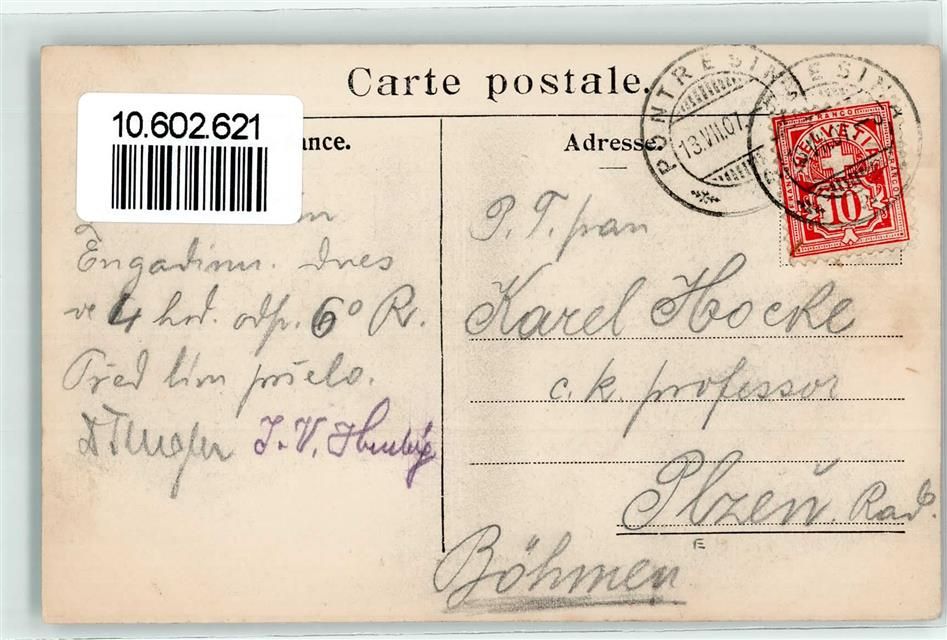 Carte postale.
10.602.621
ance.
Adresse.
PONTRESINA
13.VII.07.
PONTRESINA
FRANCO
HELVETIA
10
Engadinu. dnes
ve 4 hod. odp. 6° R.
Před tím pršelo.
J. V.
P. T. pan
Karel Hocke
c. k. professor
Plzeň. Rad.
E
Böhmen